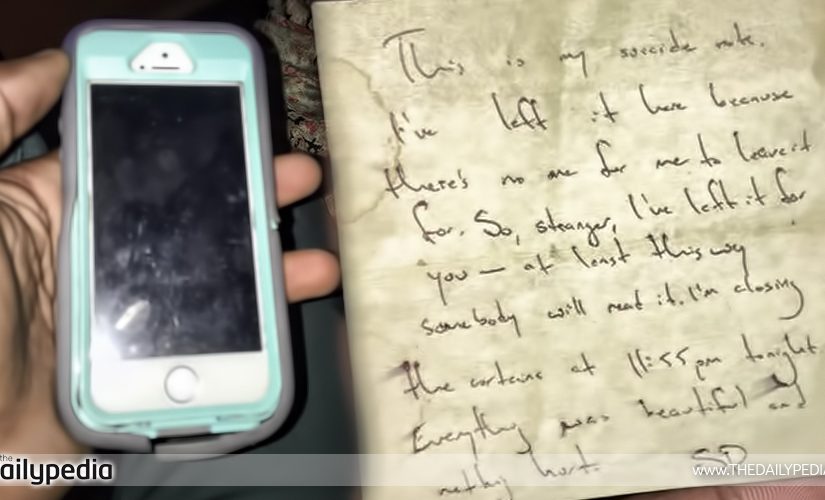 This is my suicide note.
I've left it here because
there's no one for me to leave it
for. So, stranger, I've left it for
you — at least this way
somebody will read it. I'm closing
the curtains at 11:55pm tonight
Everything was beautiful and
nothing hurt. SD
the
dailypedia
www.THEDAILYPEDIA